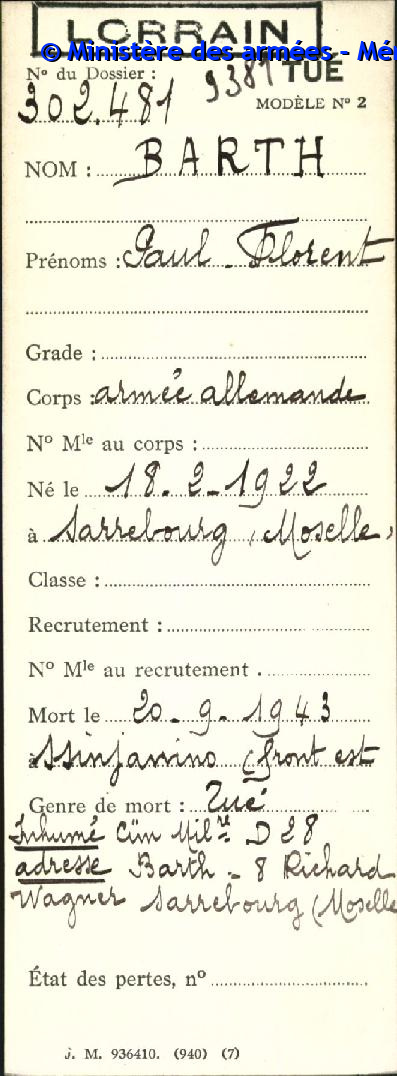 LORRAIN
© Ministère des armées - Mém
N° du Dossier : 9381 TUÉ
302.481 MODÈLE N° 2
NOM : BARTH
Prénoms : Paul - Florent
Grade :
Corps : armée allemande
N° Mle au corps :
Né le 18-2-1922
à Sarrebourg (Moselle)
Classe :
Recrutement :
N° Mle au recrutement .
Mort le 20-9-1943
à Ssinjawino (front est
Genre de mort : Tué
Inhumé Cim Milre D 28
adresse Barth - 8 Richard
Wagner Sarrebourg (Moselle
État des pertes, n°
J. M. 936410. (940) (7)